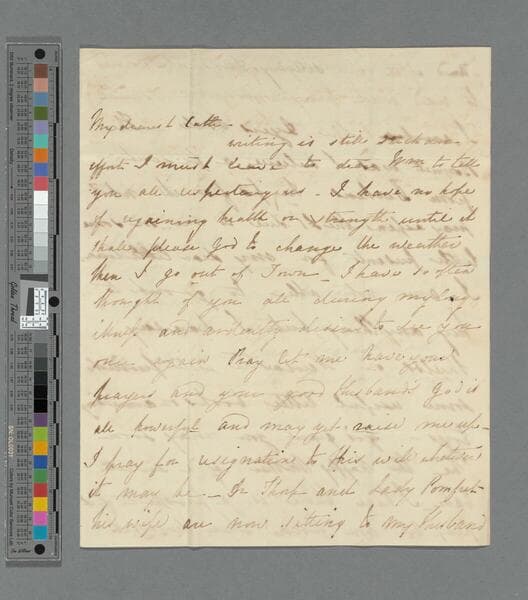 My dearest Cath -
writing is still such an
effort I must leave to dear Wm to tell
you all respecting us - I have no hope
of regaining health or strength until it
shall please God to change the weather
then I go out of Town - I have so often
thought of you all during my long
illness and ardently desire to see you
once again Pray let me have your
prayers and your good Husband's God is
all powerful and may yet raise me up -
I pray for resignation to His will whatever
it may be - Thorp and Lady Pomfret
his wife are now sitting to my Husband